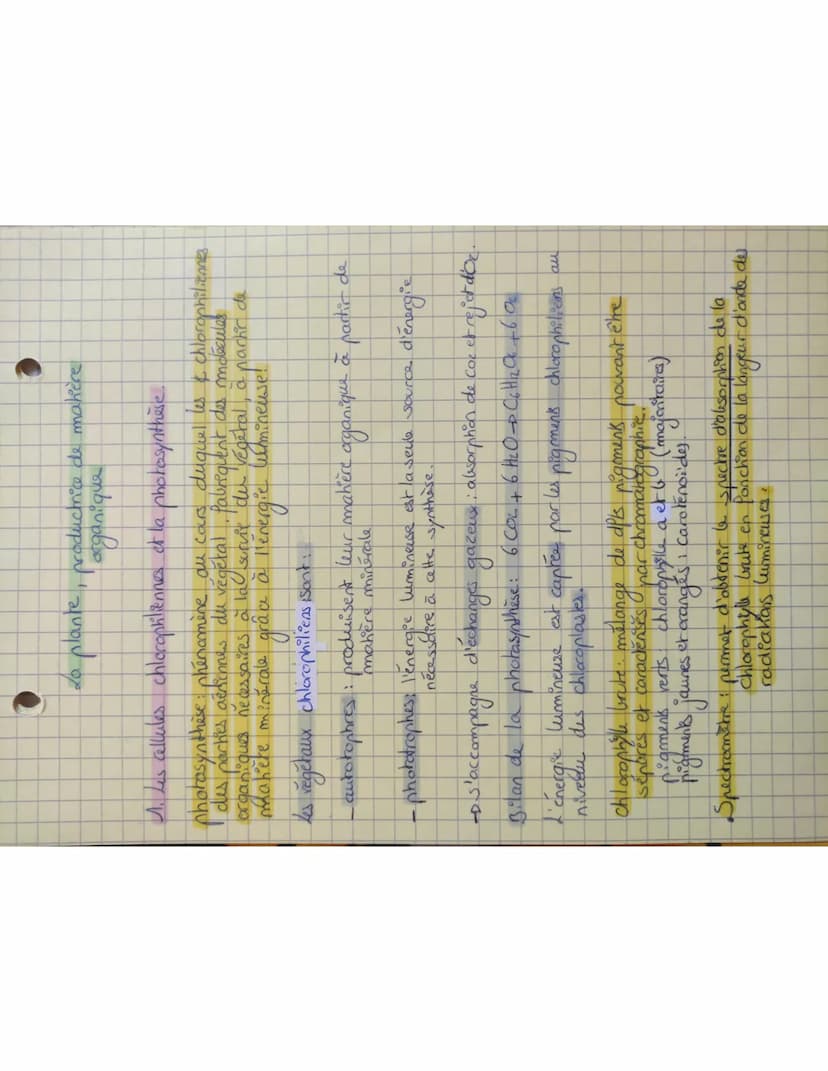 La plante, productrice de matière
organique
1. Les cellules chlorophiliennes et la photosynthèse.
photosynthèse : phénomène au cours duquel les chlorophiliennes
des parties aériennes du végétal fabriquent des molécules
organiques nécessaires à la survie du végétal, à partir de
matière minérale grâce à l'énergie lumineuse!
Les végétaux chlorophiliens sont :
- autotrophes : produisent leur matière organique à partir de
matière minérale
- phototrophes : l'énergie lumineuse est la seule source d'énergie
nécessaire à cette synthèse.
→ s'accompagne d'échanges gazeux : absorption de CO2 et rejet d'O2.
Bilan de la photosynthèse : 6 CO2 + 6 H2O → C6H12O6 + 6 O2
L'énergie lumineuse est captée par les pigments chlorophiliens au
niveau des chloroplastes.
Chlorophylle brute : mélange de pigments pouvant être
séparés et caractérisés par chromatographie.
pigments verts chlorophylle a et b (majoritaires)
pigments jaunes et orangés : caroténoïdes.
Spectromètre : permet d'obtenir le spectre d'absorption de la
chlorophylle brute en fonction de la longueur d'onde des
radiations lumineuses.